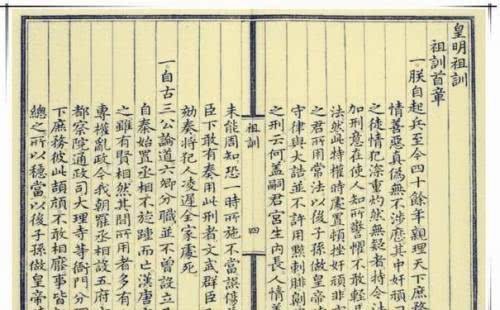 皇明祖訓
祖訓首章
一朕自起兵至今四十餘年親理天下庶務
情善惡真偽無不涉歷其中奸頑刁
之徒情犯深重灼然無疑者持令法
加刑意在使人知所警懼不敢輕易
法然此特權時處置頓挫奸頑非
之君所用常法以後子孫做皇帝
守律與大誥並不許用黥刺腓劓
之刑云何蓋嗣君宮生內長人情
祖訓
四
未能周知恐一時所施不當誤傷
臣下敢有奏用此刑者文武群臣
劾奏將犯人凌遲全家處死
一自古三公論道六卿分職並不曾設立
自秦始置丞相不旋踵而亡漢唐
之雖有賢相然其間所用者多有
專權亂政今我朝罷丞相設五府
都察院通政司大理寺等衙門分
下庶務彼此頡頏不敢相壓事皆
總之所以穩當以後子孫做皇帝